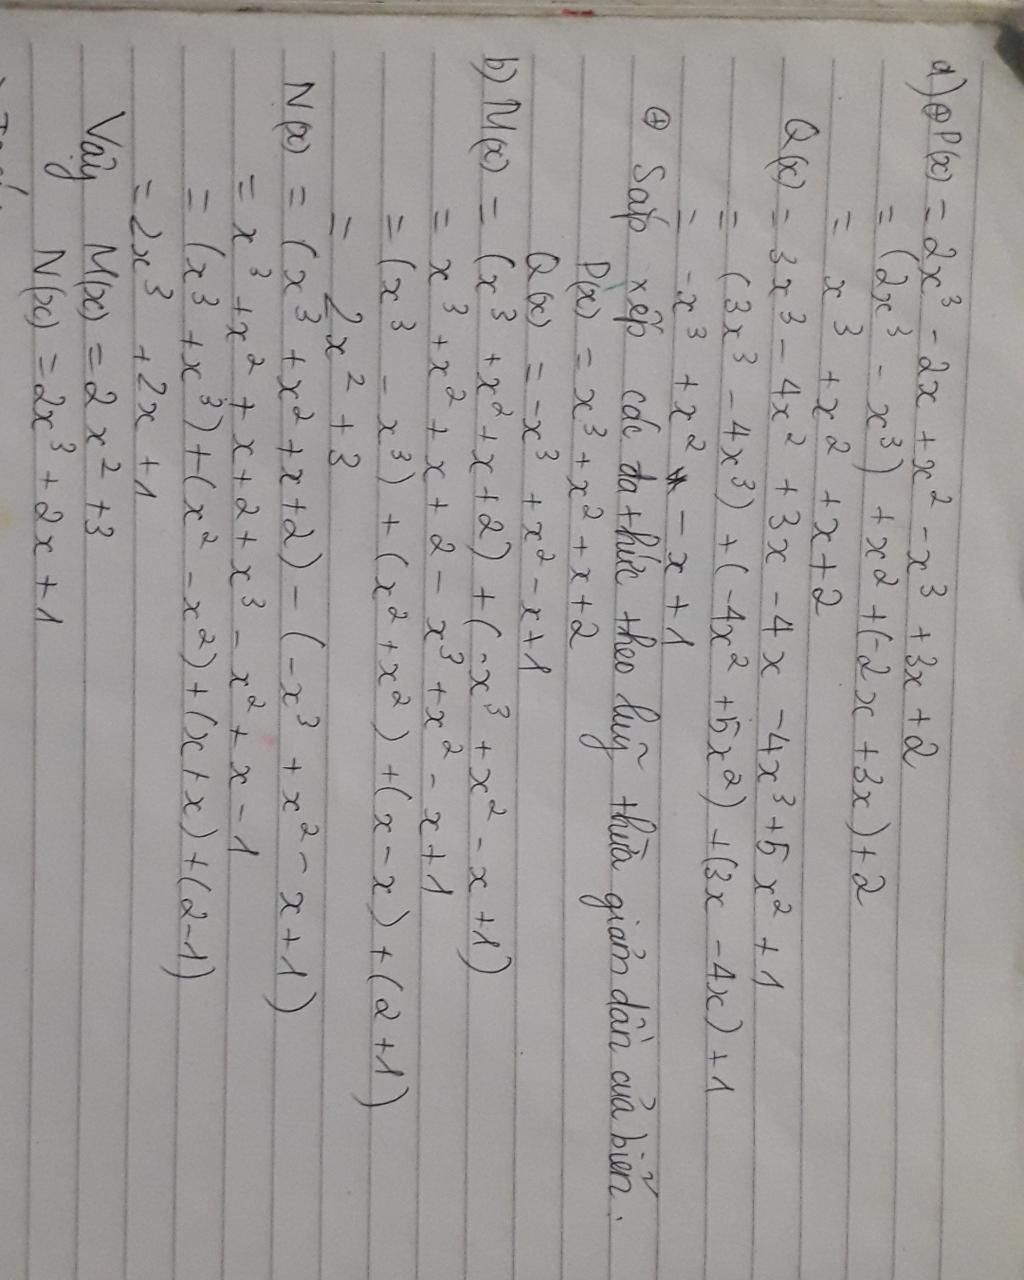 a) ⊕ P(x) = 2x³ - 2x + x² - x³ + 3x + 2
= (2x³ - x³) + x² + (-2x + 3x) + 2
= x³ + x² + x + 2
Q(x) = 3x³ - 4x² + 3x - 4x - 4x³ + 5x² + 1
= (3x³ - 4x³) + (-4x² + 5x²) + (3x - 4x) + 1
= -x³ + x² - x + 1
⊕ Sắp xếp các đa thức theo luỹ thừa giảm dần của biến.
P(x) = x³ + x² + x + 2
Q(x) = -x³ + x² - x + 1
b) M(x) = (x³ + x² + x + 2) + (-x³ + x² - x + 1)
= x³ + x² + x + 2 - x³ + x² - x + 1
= (x³ - x³) + (x² + x²) + (x - x) + (2 + 1)
= 2x² + 3
N(x) = (x³ + x² + x + 2) - (-x³ + x² - x + 1)
= x³ + x² + x + 2 + x³ - x² + x - 1
= (x³ + x³) + (x² - x²) + (x + x) + (2 - 1)
= 2x³ + 2x + 1
Vậy M(x) = 2x² + 3
N(x) = 2x³ + 2x + 1